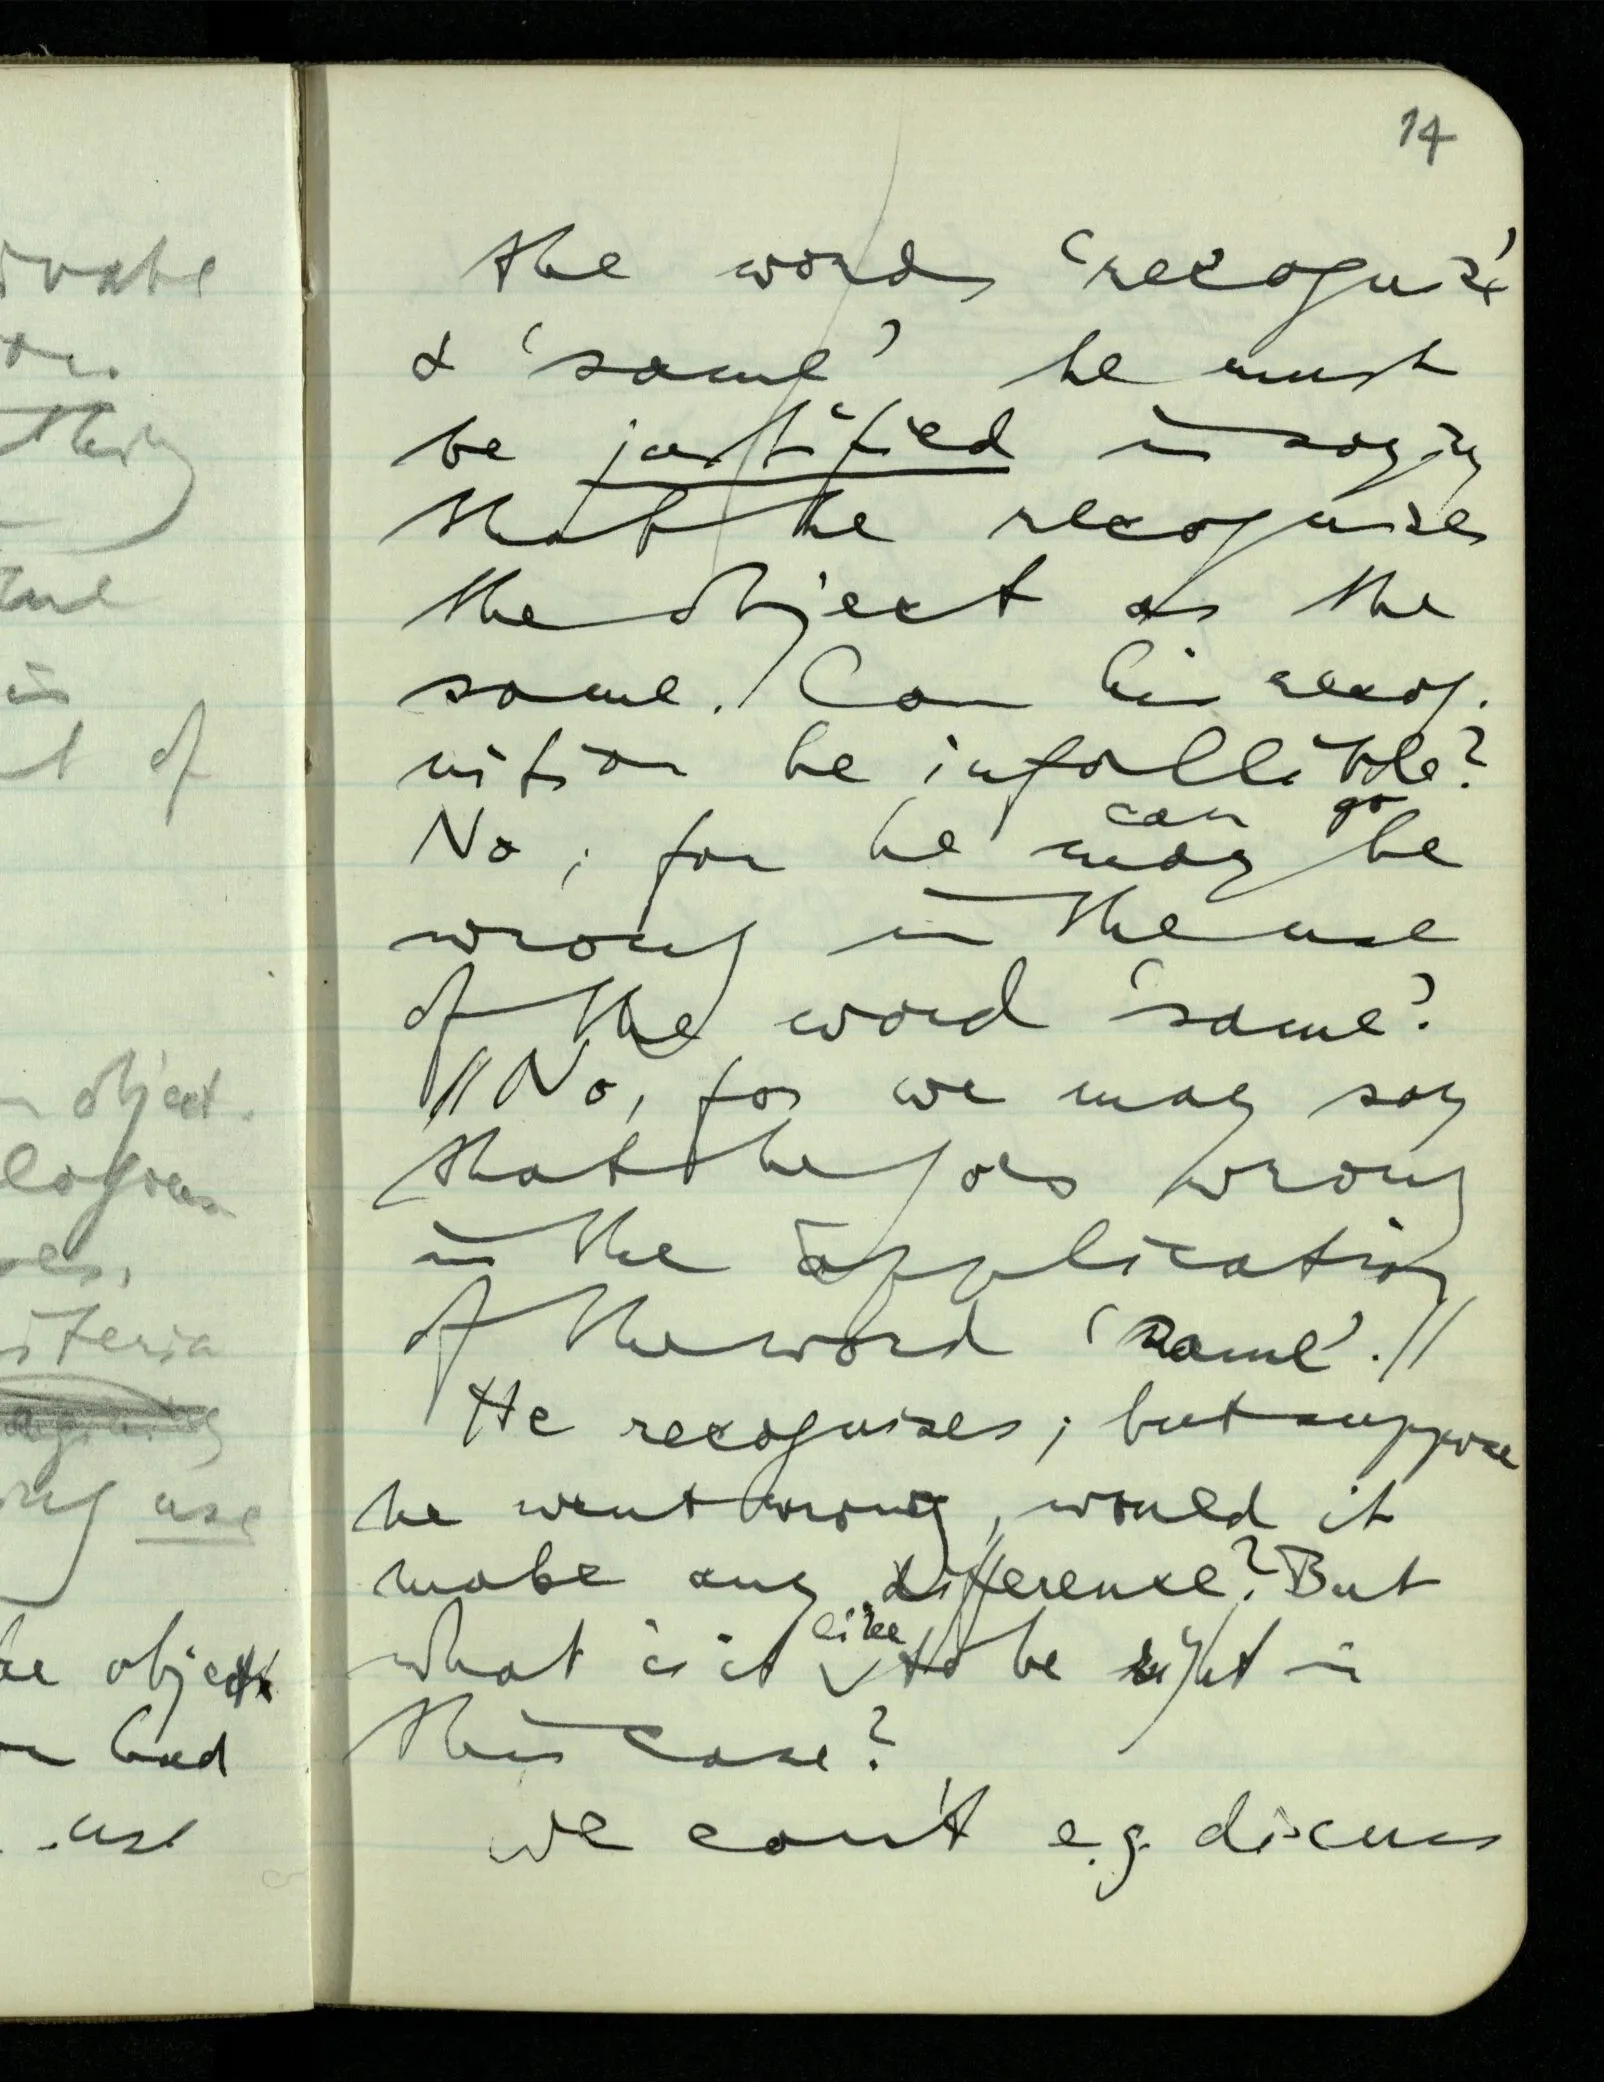 ivate
thing
in
t of
object.
iteria
use
objects
had
use
14
the words 'recognize'
& 'same' he must
be justified in saying
that he recognises
the object as the
same. Can his recog-
nition be infallible?
can go
No; for he may be
wrong in the use
of the word 'same'.
//No, for we may say
that he goes wrong
in the application
of the word 'same'.//
He recognises; but suppose
he went wrong, would it
make any difference? But
like
what is it to be right in
this case?
we can't e.g. discuss